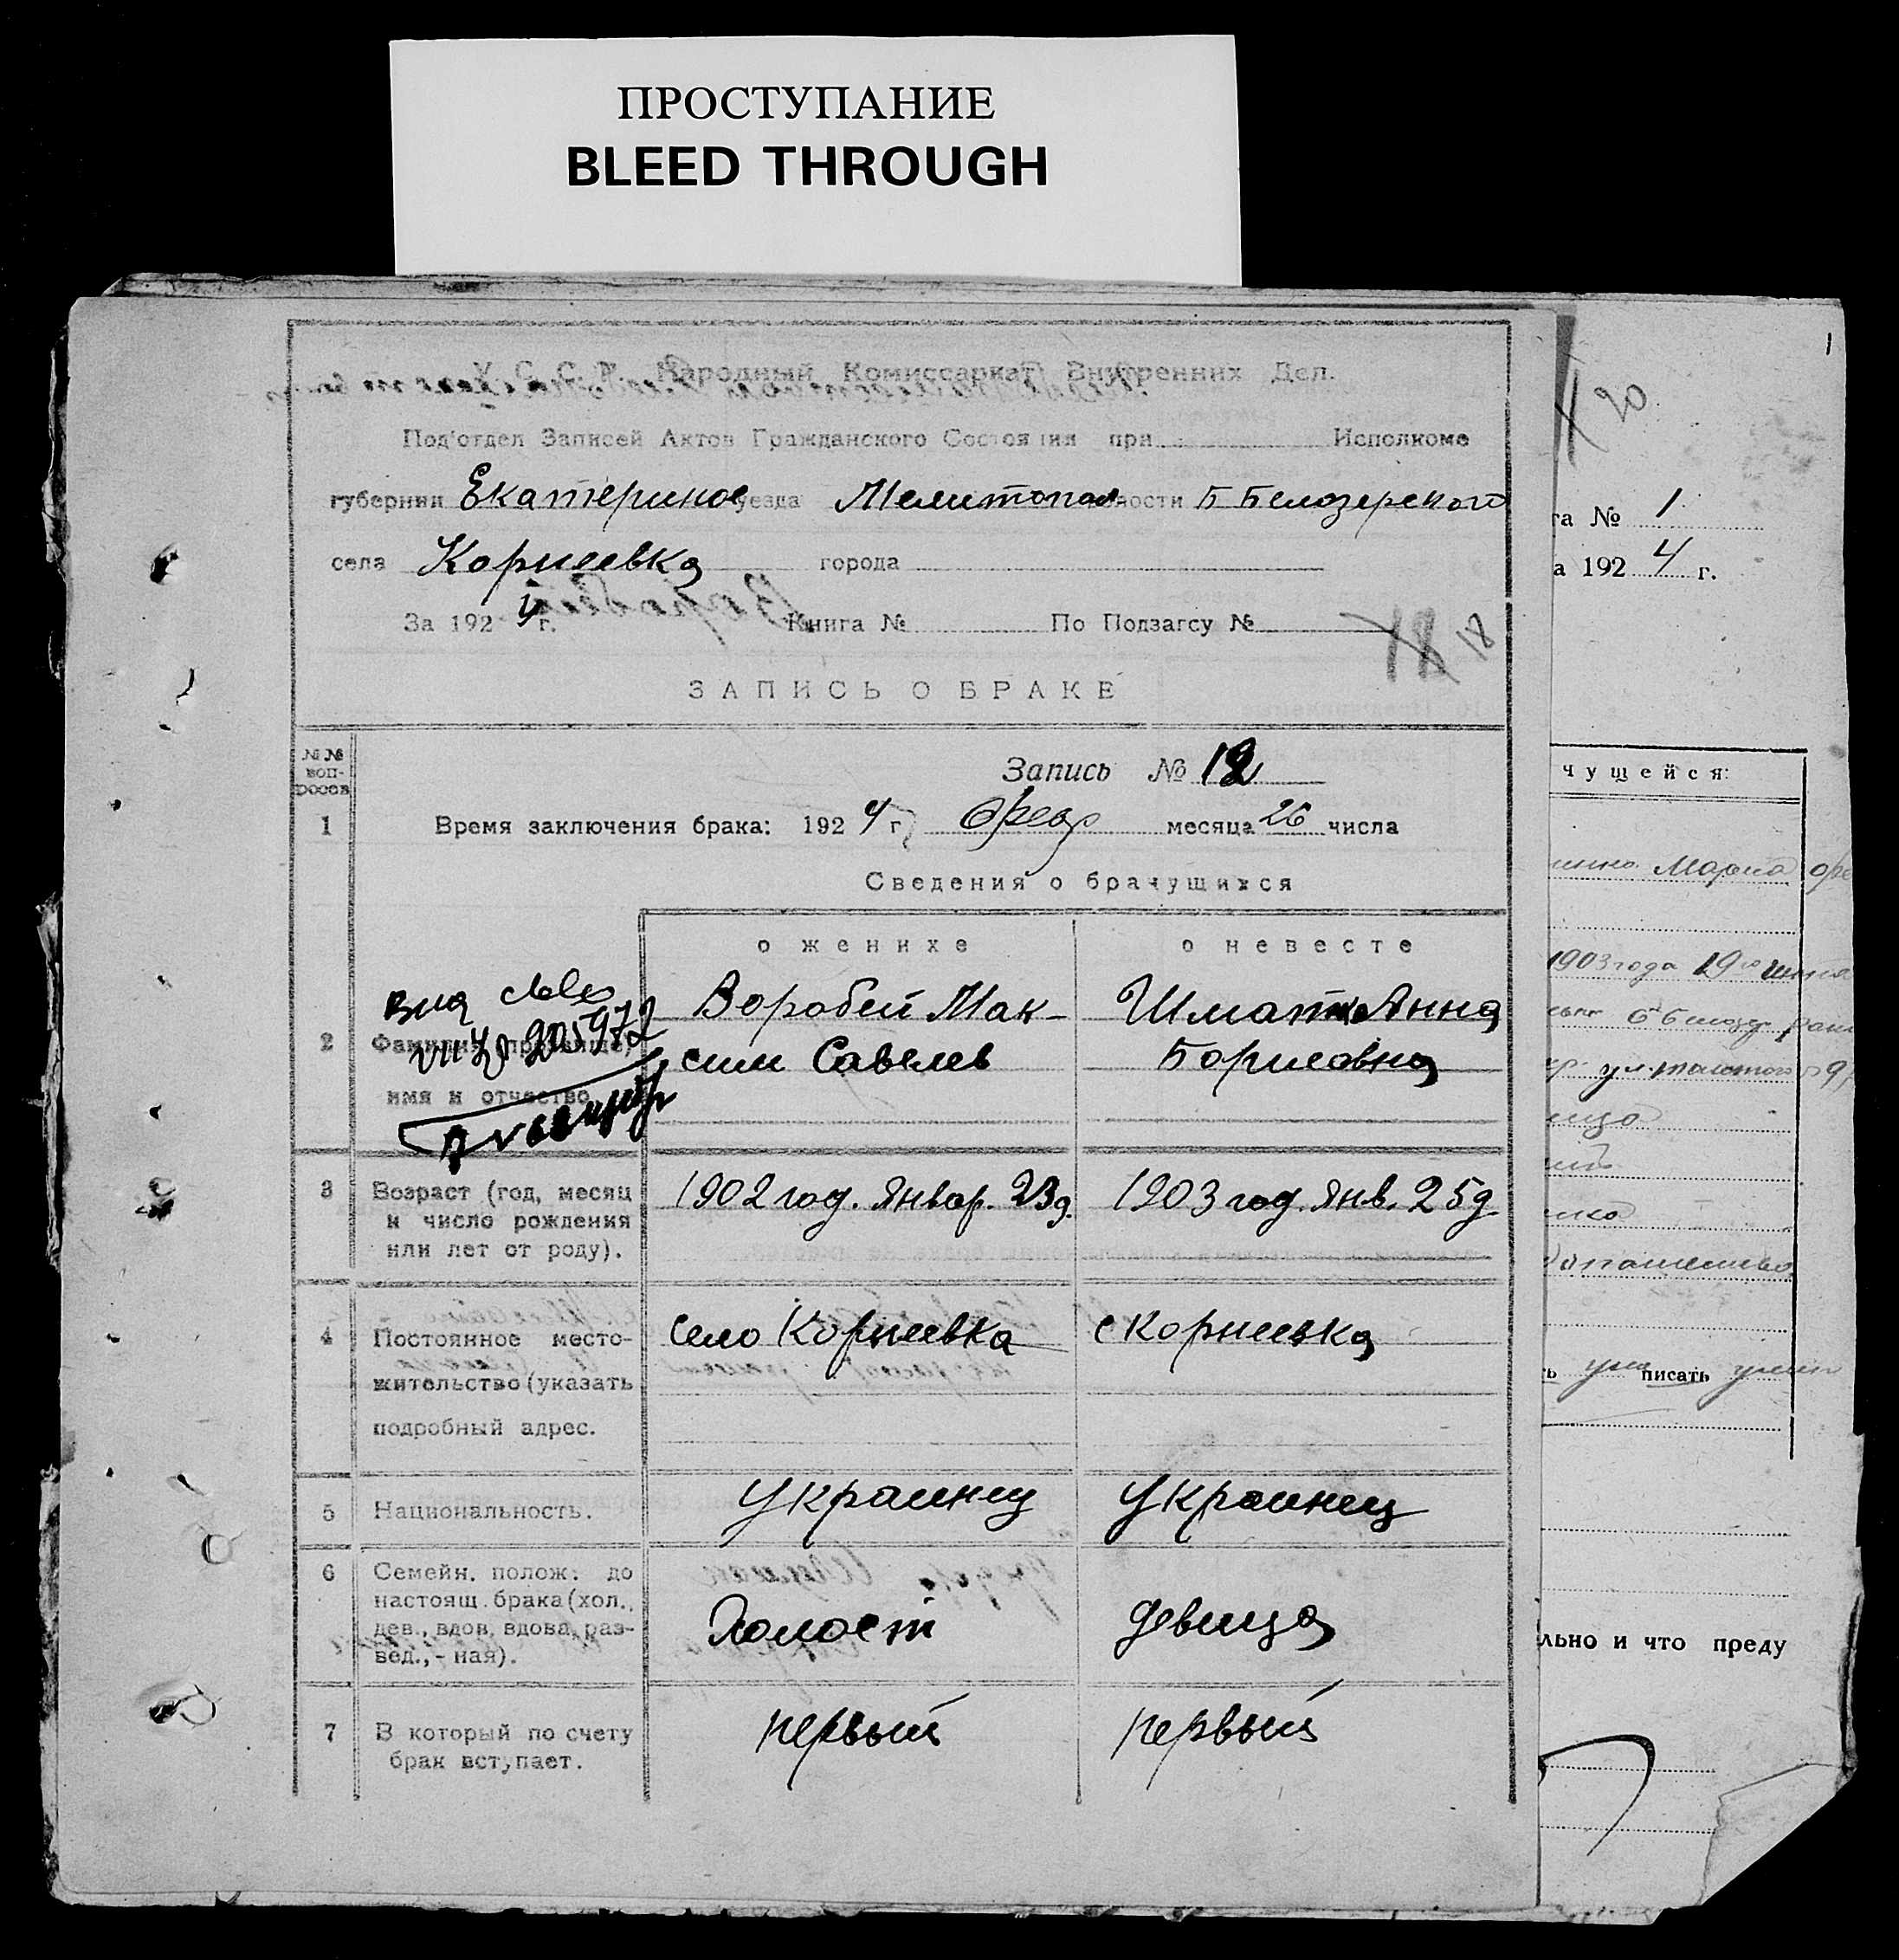 ПРОСТУПАНИЕ
BLEED THROUGH
У. С. С. Р. Народный Комиссариат Внутренних Дел.
Под'отдел Записей Актов Гражданского Состояния при Исполкоме
губернии Екатеринос уезда Мелитопол волости Б Белозерского
села Корнеевка города
За 1924 г. Книга № По Подзагсу № 18 18
ЗАПИСЬ О БРАКЕ
№№ воп-росов
Запись № 12
1 Время заключения брака: 1924 г. Февр месяца 26 числа
Сведения о брачущихся
о женихе о невесте
Воробей Мак- Шматко Анна
2 Фамилия (прозвище) сим Савелев Борисовна
имя и отчество
205972
3 Возраст (год, месяц 1902 год. Январ. 23д. 1903 год. Янв. 25д.
и число рождения
или лет от роду).
4 Постоянное место- село Корнеевка с Корнеевка
жительство (указать
подробный адрес.
5 Национальность. Украинец Украинец
6 Семейн. полож: до
настоящ. брака (хол.,
дев., вдов, вдова, раз- Холост девица
вед.,-ная).
7 В который по счету первый первый
брак вступает.
1
20
та № 1
а 1924 г.
чущейся:
Мария
1903 года 19го
писать
льно и что преду